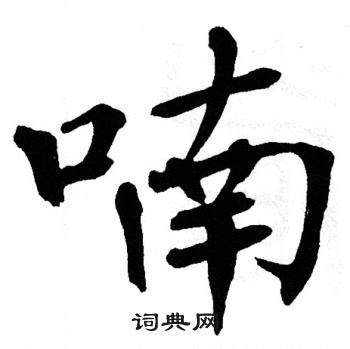 喃
词典网